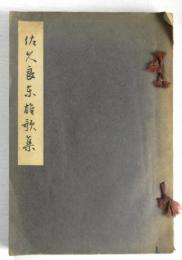 佐久良東雄歌集